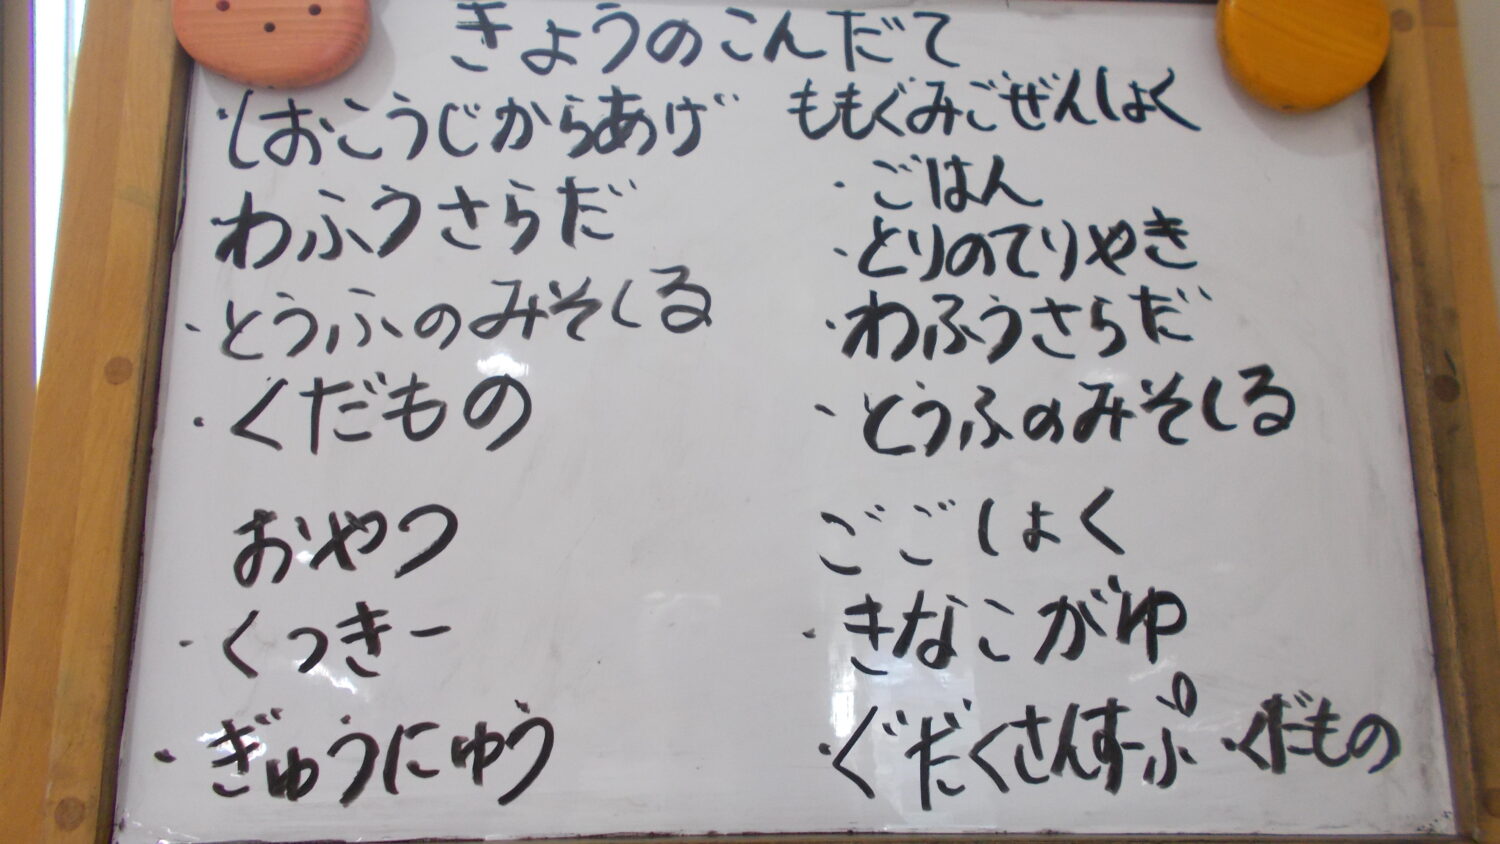 きょうのこんだて
・しおこうじからあげ
わふうさらだ
・とうふのみそしる
・くだもの
おやつ
・くっきー
・ぎゅうにゅう
ももぐみごぜんしょく
・ごはん
・とりのてりやき
・わふうさらだ
・とうふのみそしる
ごごしょく
・きなこがゆ
・ぐだくさんすーぷ ・くだもの